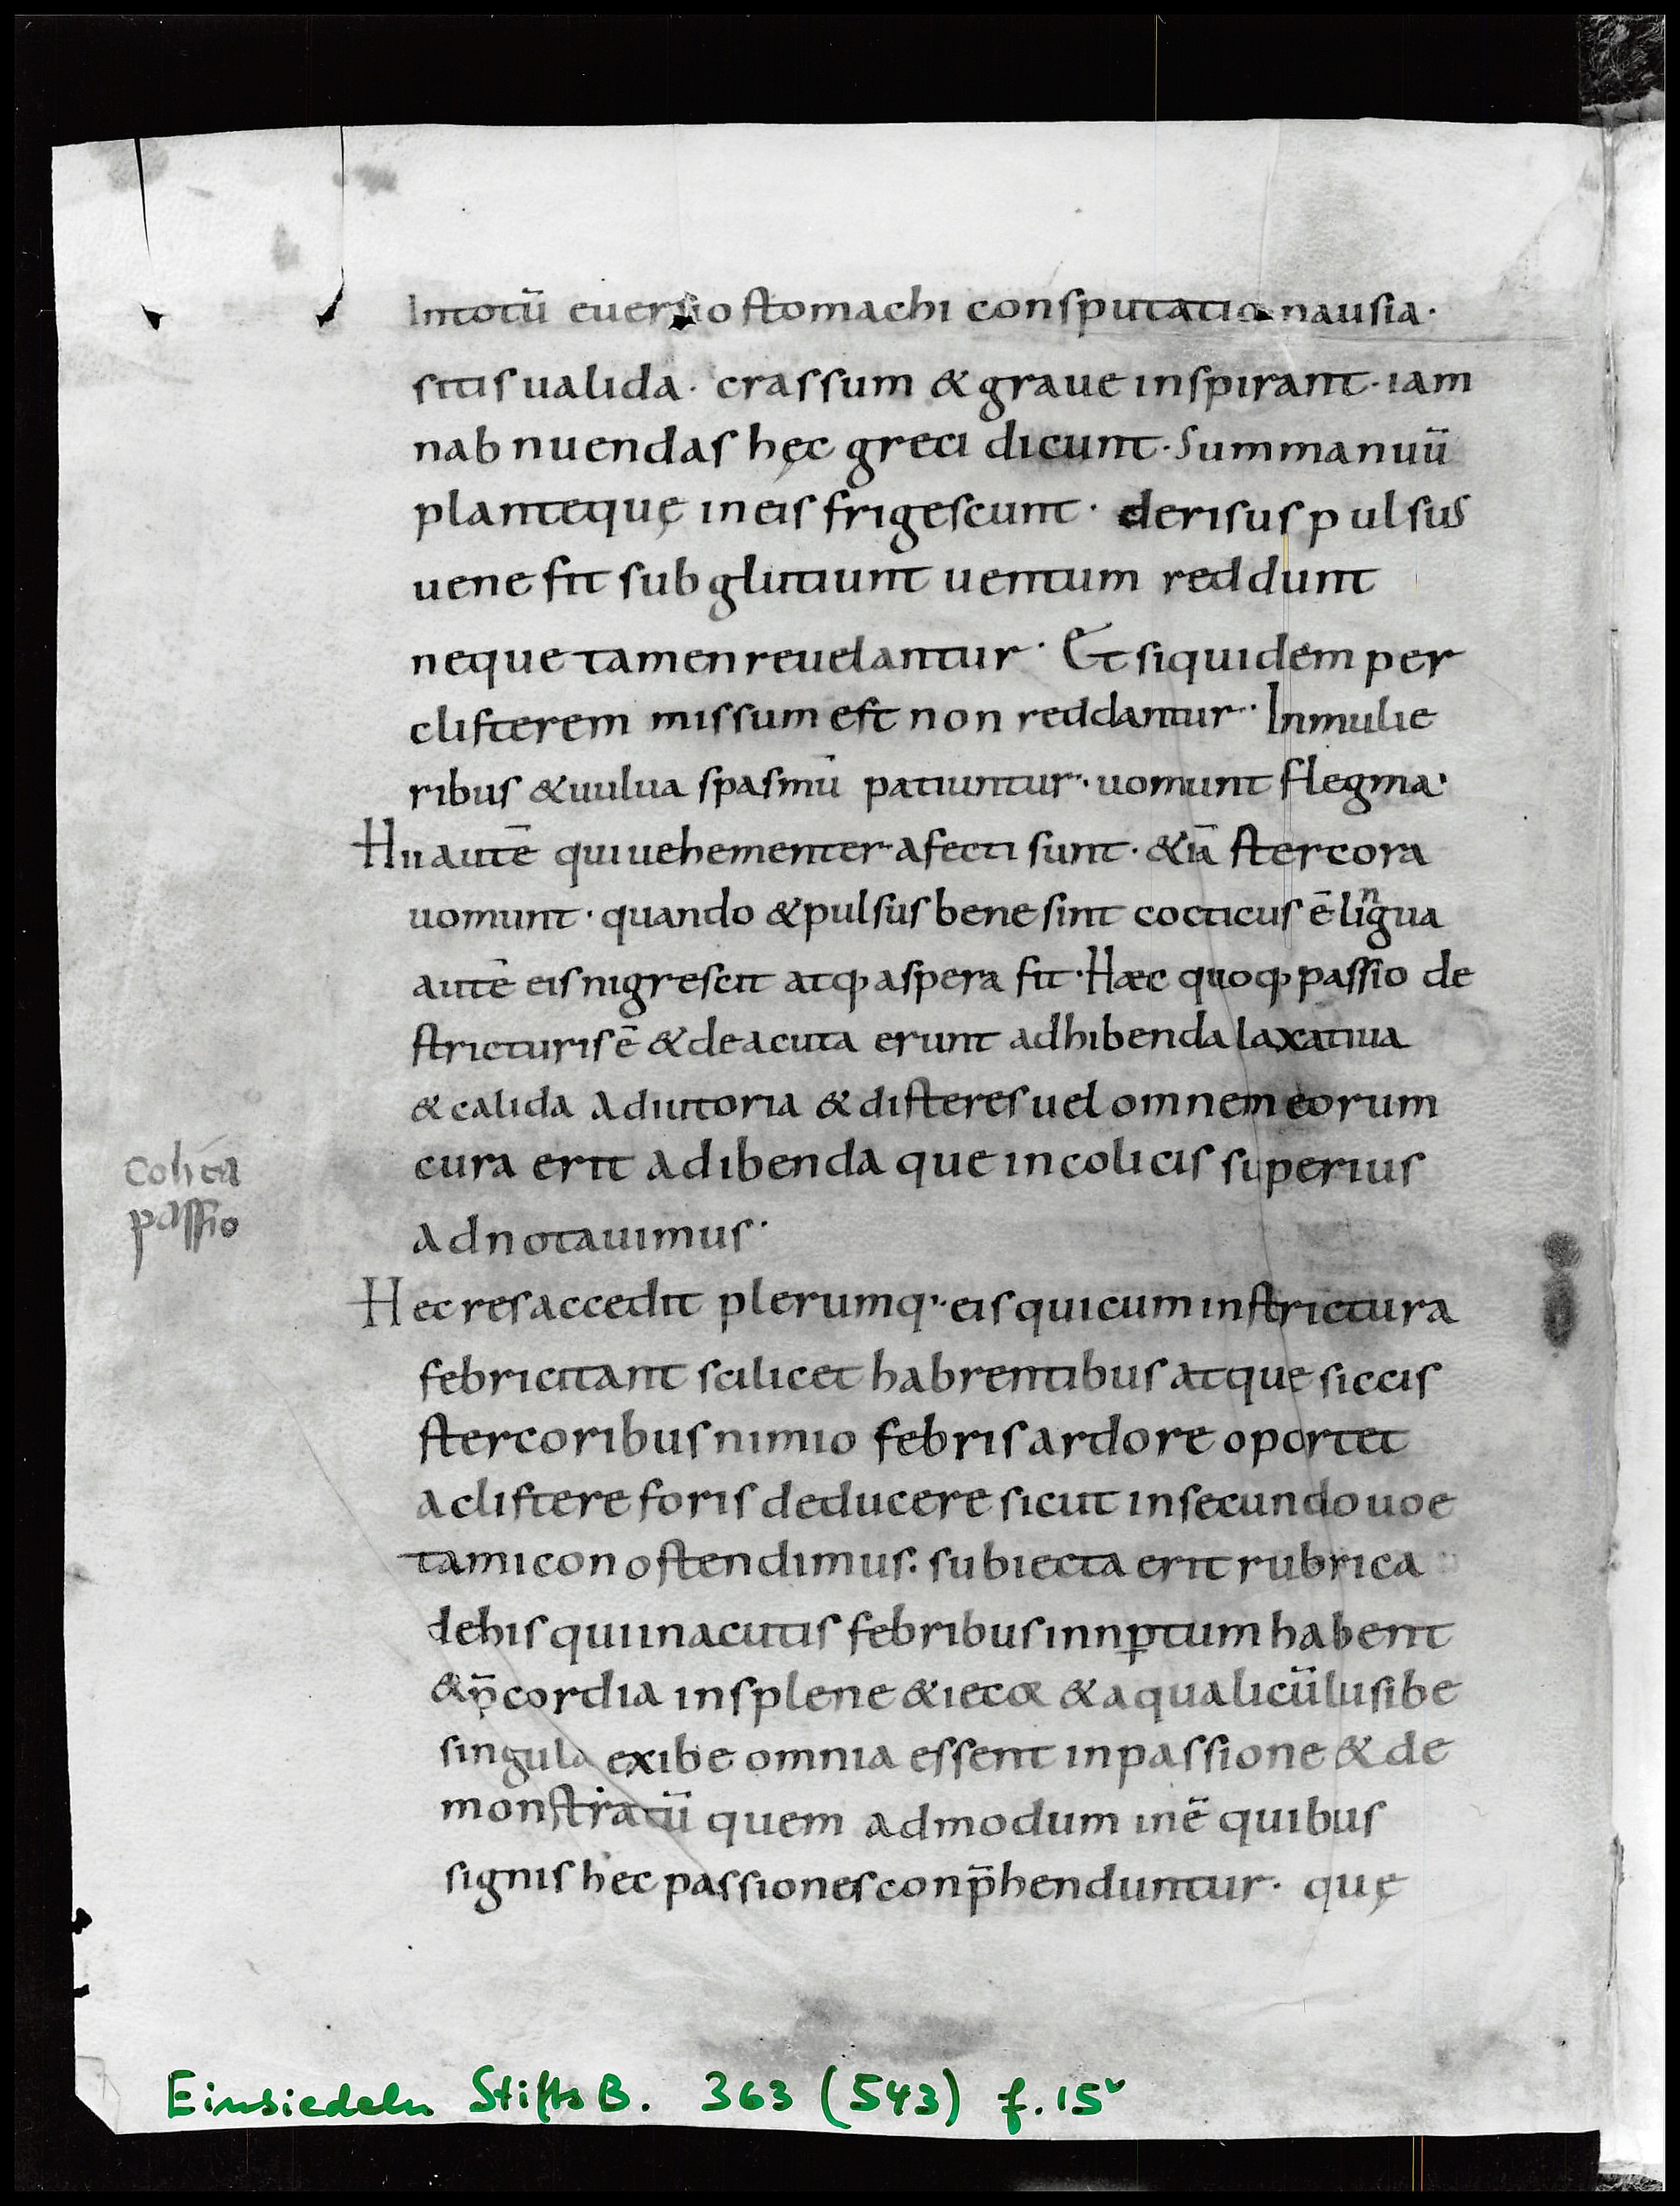 Intotū euersio stomachi consputatio nausia·
sitis ualida· crassum & graue inspirant· iam
nab nuendas hęc greci dicunt· Summanuū
plantequę in eis frigescunt· derisus pulsus
uene fit sub glutiunt uentum reddunt
neque tamen reuelantur· Et siquidem per
clisterem missum est non reddantur· Inmulie
ribus & uulua spasmū patiuntur· uomunt flegma·
Hii autē qui uehementer afecti sunt· & iā stercora
uomunt· quando & pulsus bene sint cocticus ē lingua
autē eis nigrescit atq; aspera fit· Haec quoq; passio de
stricturis ē & de acuta erunt adhibenda laxatiua
& calida adiutoria & disteres uel omnem eorum
cura erit adibenda que incolicis superius
adnotauimus·
colica
passio
Hec res accedit plerumq· eis qui cum in strictura
febricitant scilicet habrentibus atque siccis
stercoribus nimio febris ardore oportet
a clistere foris deducere sicut in secundo uoe
tamicon ostendimus: subiecta erit rubrica
de his qui in acutis febribus inn ꝑtum habent
& p̄cordia in splene & iecor & aqualicūlusibe
singula exibe omnia essent in passione & de
monstratū quem admodum inē quibus
signis hec passiones conp̄henduntur· quę
Einsiedeln StiftsB. 363 (543) f. 15v